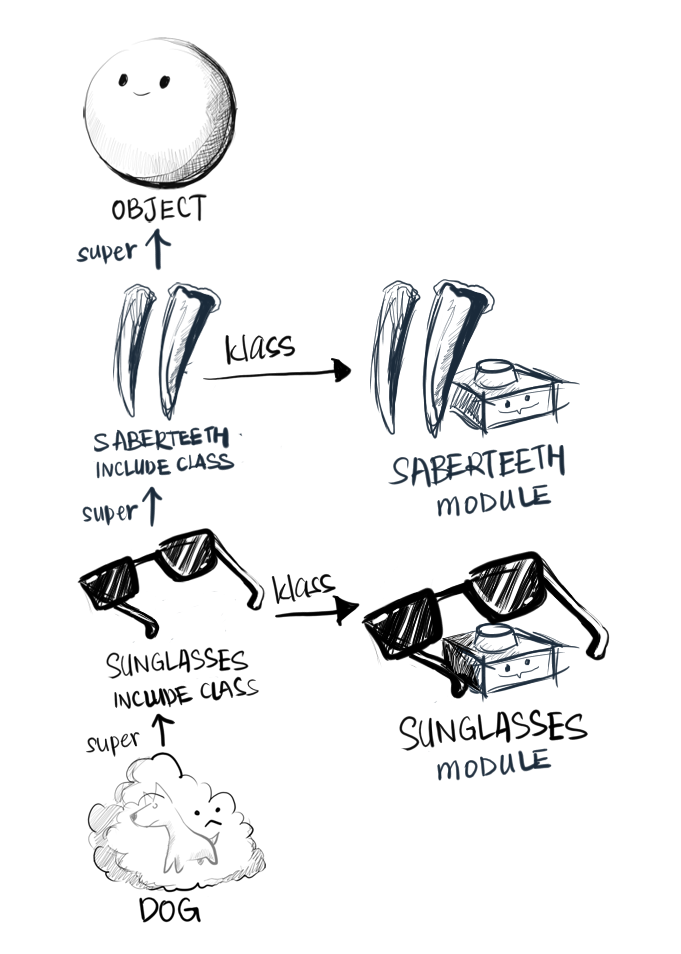 OBJECT
super
klass
SABERTEETH
INCLUDE CLASS
SABERTEETH
MODULE
super
klass
SUNGLASSES
INCLUDE CLASS
SUNGLASSES
MODULE
super
DOG